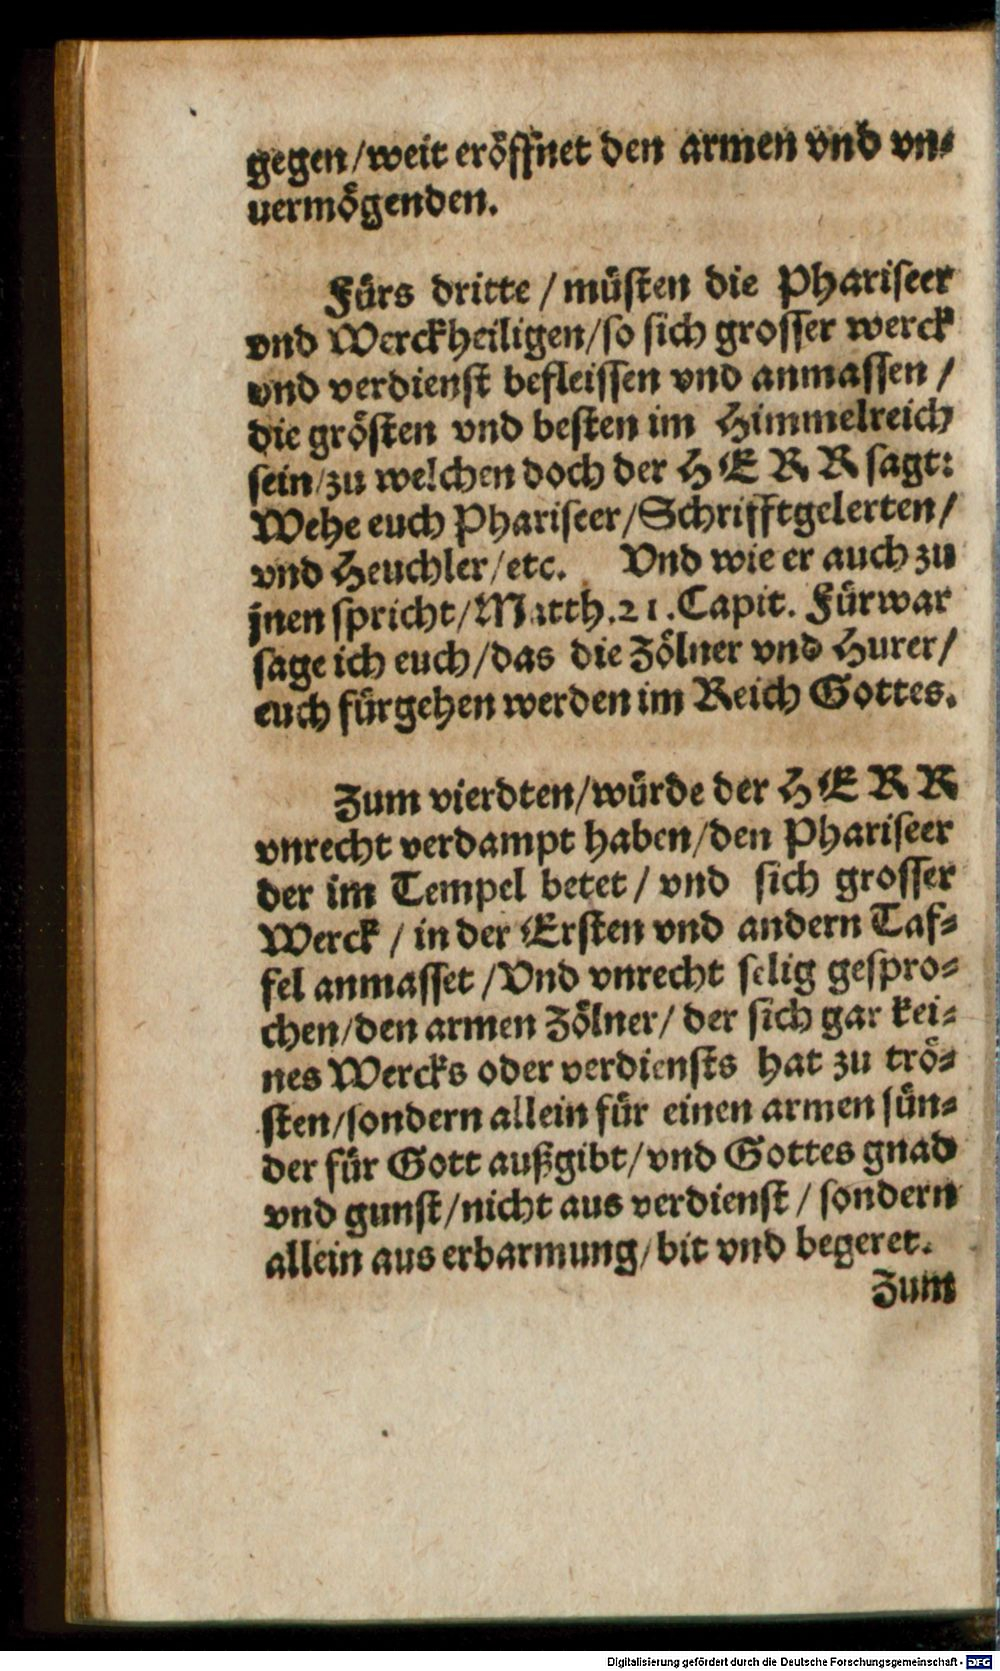 gegen/weit eröffnet den armen vnd vn⸗
uermögenden.
Fürs dritte / müsten die Phariseer
vnd Werckheiligen/so sich grosser werck
vnd verdienst befleissen vnd anmassen /
die grösten vnd besten im Himmelreich
sein/zu welchen doch der HERR sagt:
Wehe euch Phariseer/Schrifftgelerten/
vnd Heuchler/etc. Vnd wie er auch zu
jnen spricht/Matth.21.Capit. Fürwar
sage ich euch/das die Zölner vnd Hurer/
euch fürgehen werden im Reich Gottes.
Zum vierdten/würde der HERR
vnrecht verdampt haben/den Phariseer
der im Tempel betet / vnd sich grosser
Werck / in der Ersten vnd andern Taf⸗
fel anmasset /Vnd vnrecht selig gespro⸗
chen/den armen Zölner/ der sich gar kei⸗
nes Wercks oder verdiensts hat zu trö⸗
sten/sondern allein für einen armen sün⸗
der für Gott außgibt/vnd Gottes gnad
vnd gunst/nicht aus verdienst / sondern
allein aus erbarmung/bit vnd begeret.
Zum
Digitalisierung gefördert durch die Deutsche Forschungsgemeinschaft - DFG